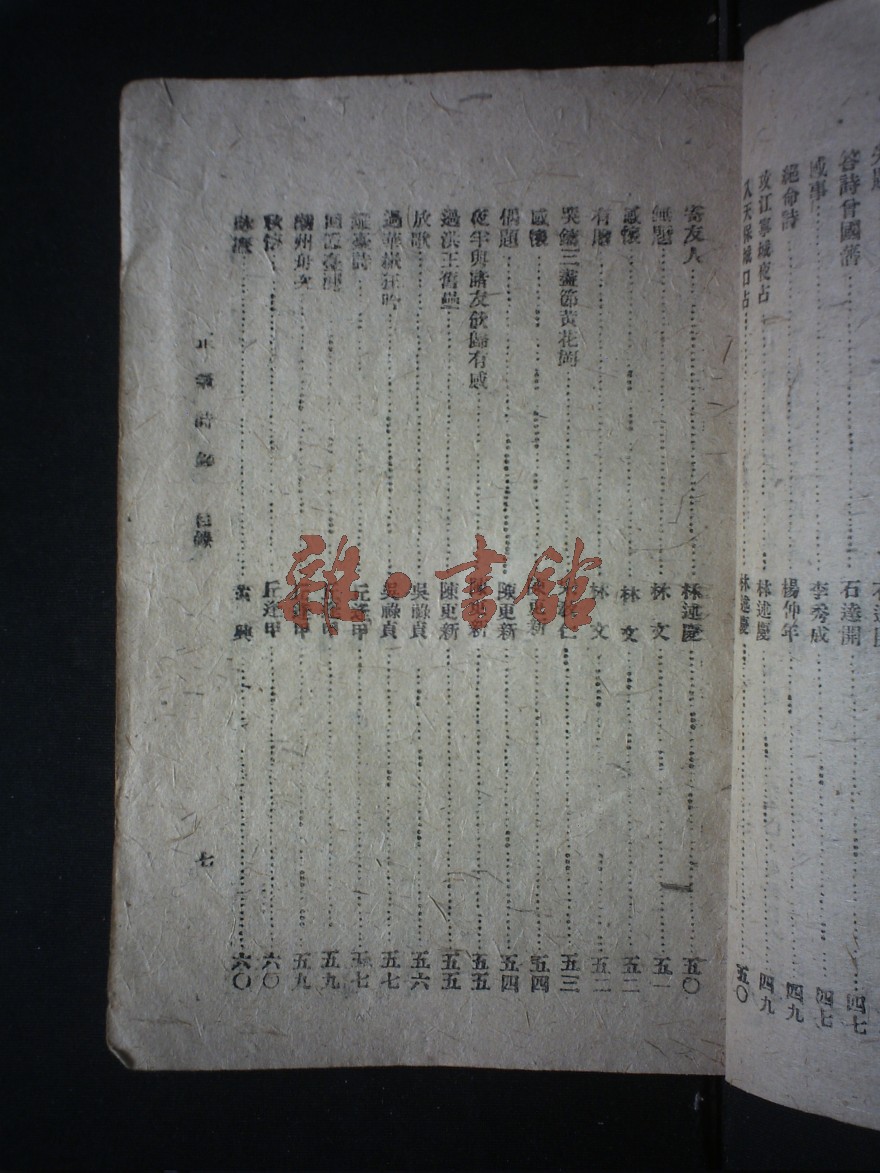 答詩曾國藩 石達開 四七
感事 李秀成 四七
絕命詩 楊仲年 四九
攻江寧城夜占 林述慶 四九
入天保城口占 林述慶 五〇
寄友人 林述慶 五〇
無題 林文 五一
感懷 林文 五二
有 林文 五二
哭 三 節黃花崗 五三
感懷 陳更新 五四
偶題 陳更新 五四
夜半與諸友飲歸有感 陳更新 五五
過洪王舊壘 陳更新 五五
放歌 吳祿貞 五六
過華嶽狂吟 吳祿貞 五七
臺詩 丘逢甲 五七
五九
潮州舟次 丘逢甲 五九
秋 丘逢甲 六〇
黃興 六〇
正氣詩 目錄
七
雜·書館